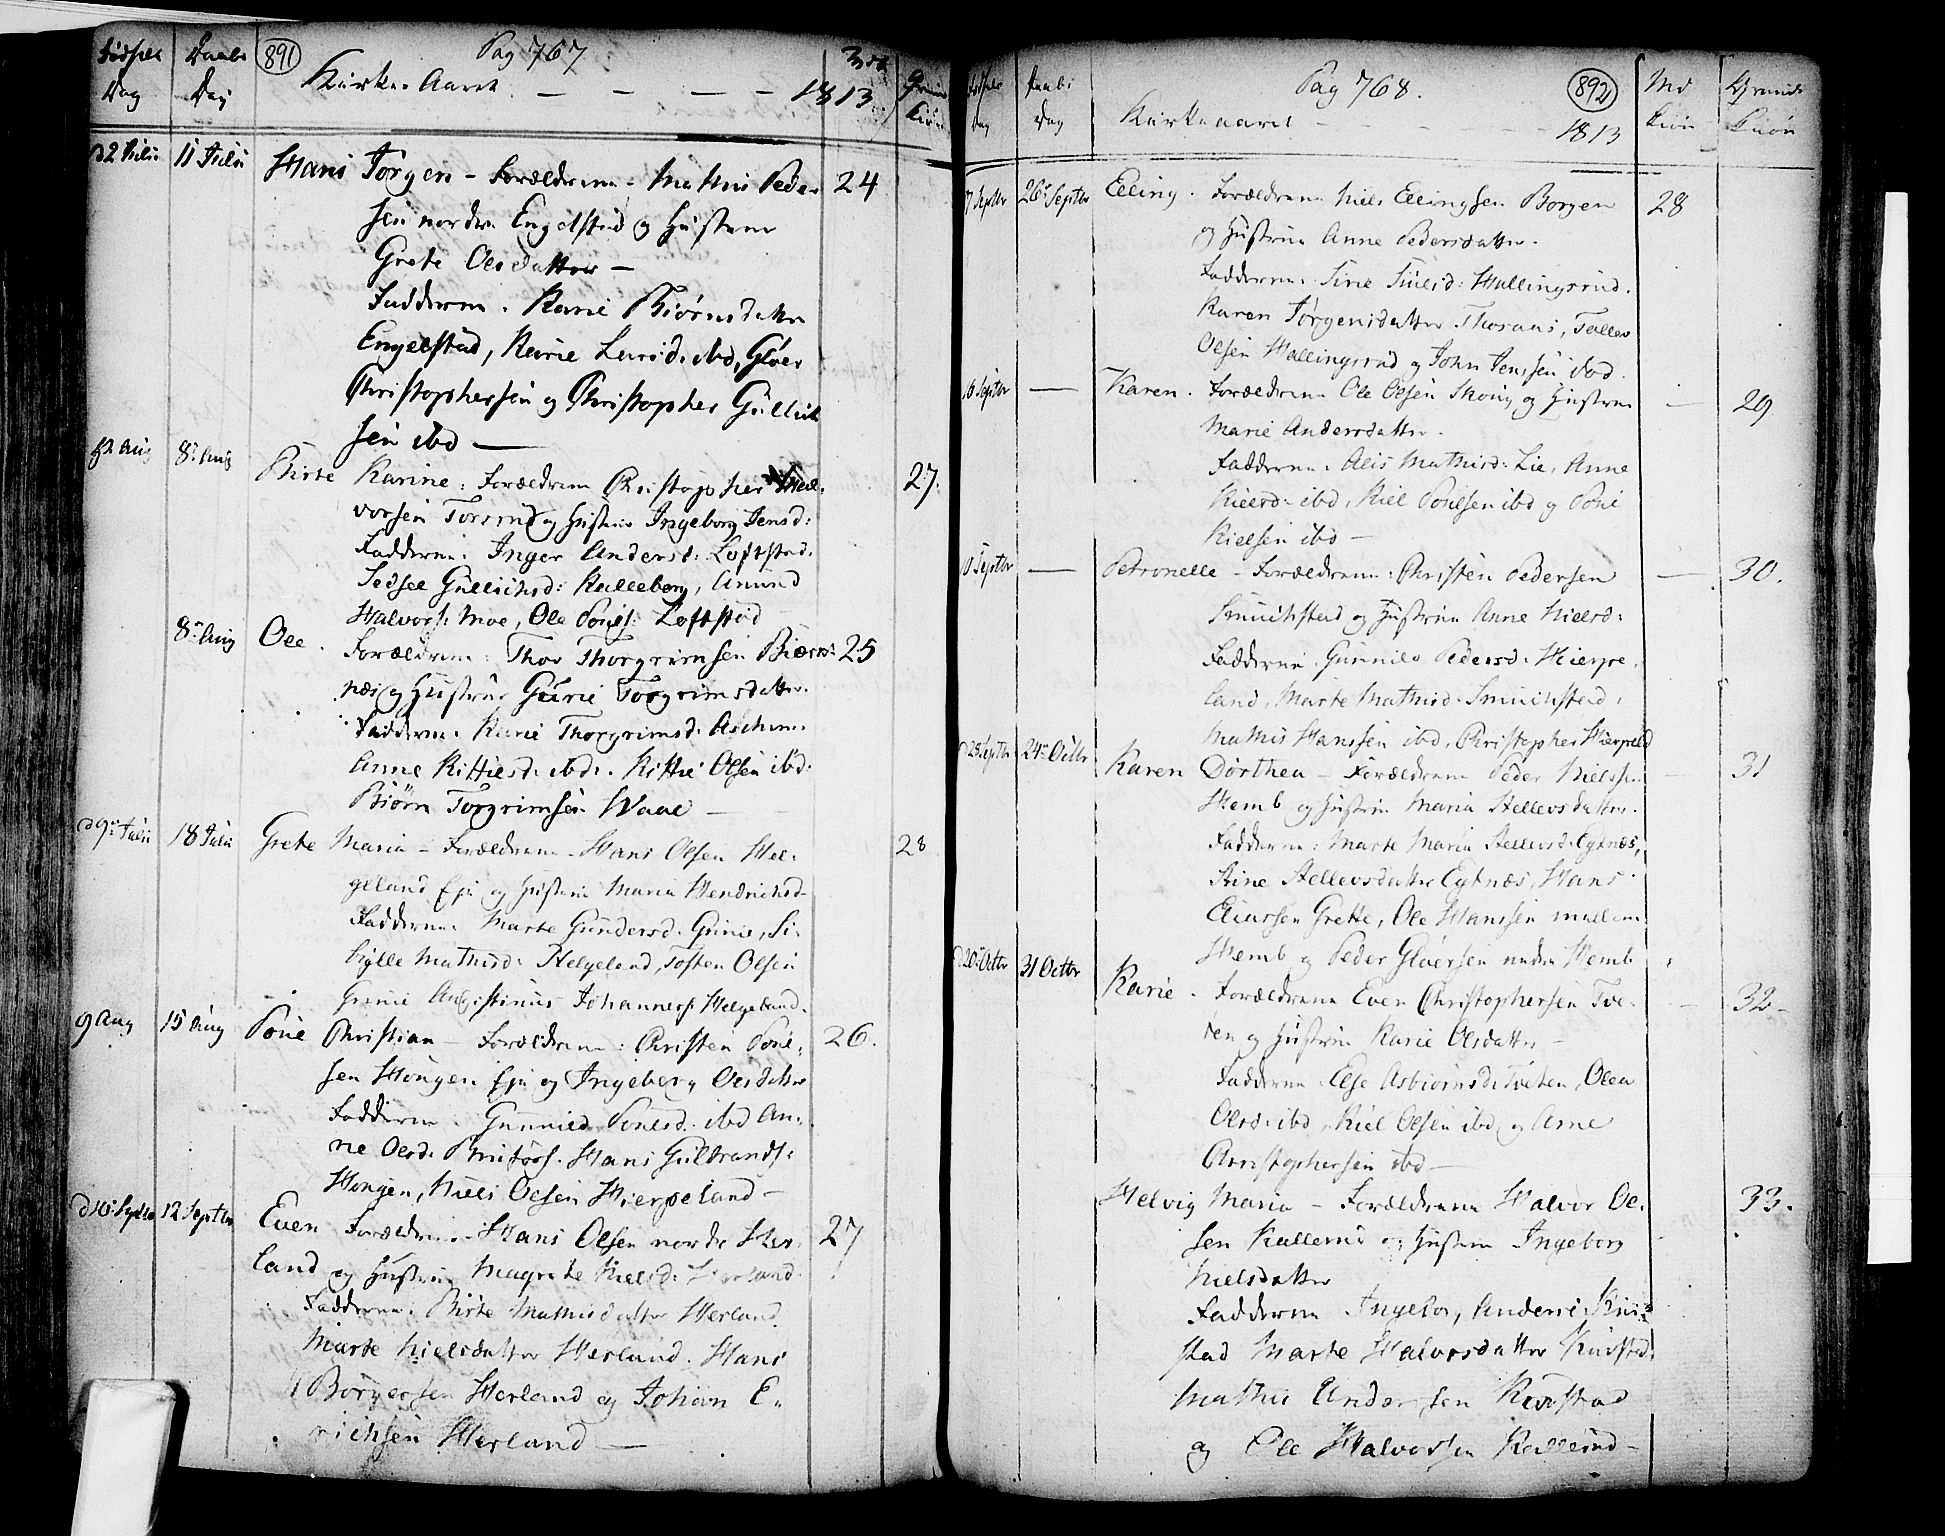 Fødsels Daabs 891 Pag 767
Dag Dag Kirke Aaret - - - - 1813
d 2 Julii 11 Julii Hans Jörgen - Forældrene - Mathis Peder- 24
sen nordre Engelstad og Hustrue
Grete Olsdatter -
Fadderne: Karie Biørnsdatter
Engelstad, Karie Larsd: ibd, Gloer
Christophersen og Christopher Gullik
sen ibd -
8de Aug Birte Karine: Forældrene Christopher Hal- 27.
vorsen Torsrud og Hustrue Ingeborg Jensd:
Fadderne: Inger Andersd: Loftstad.
Sedsel Gullichsd: Kalleberg, Amund
Halvors: Moe, Ole Povels: Loftstad
8de Aug Ole. Forældrene: Thor Thorgrimsen Biørn- 25
næs og Hustrue Gurie Torgrimsdatter.
Fadderne: Karie Thorgrimsd: Aschim.
Anne Kittilsd: ibd. Kittil Olsen ibd:
Biörn Torgrimsen Waae -
d 9de Julii 18 Julii Grete Maria - Forældrene - Hans Olsen Hel- 28
geland Eje og Hustrue Maria Hendrichsd-
Fadderne: Marte Gundersd: Grinie, Si-
bylle Mathisd: Helgeland, Tosten Olsen
Grinie Augistinus Johanness: Helgeland.
9 Aug 15 Aug Povel Christian - Forældrene: Christen Povel- 26.
sen Hougen Eje og Ingeborg Olsdatter
Fadderne: Gunnild Povelsd: ibd An-
ne Olsd: Hans Guldbrands:
Hougen, Niels Olsen Hierpeland -
12 Septbr Even Forældrene - Hans Olsen nordre Her- 27
land og Hustrue Magrete Nielsd: Herland.
Fadderne: Birte Mathisdatter Herland.
Marte Nielsdatter Herland. Hans
Börgersen Herland og Johan E-
richsen Herland -
Fødsels Daabs Pag 768. 892 Md Qvinde
Dag Dag Kirkeaaret - - - - 1813 Kiøn Kiøn
7 Septbr 26de Septbr Elling. Forældrene Niels Ellingsen Borgen 28
og Hustrue Anne Pedersdatter.
Fadderne: Sirie Hallingsrud.
Karen Jørgensdatter Thoraas, Tollev
Olsen Hallingsrud og John Jenssen ibd.
16 Septbr - Karen. Forældrene Ole Olsen Skoug og Hustrue - 29
Marie Andersdatter.
Fadderne: Alis Mathisd: Lie, Anne
Kield: ibd, Kiel Povelsen ibd og Povel
Kielsen ibd -
10 Septbr - Petronelle - Forældrene: Christen Pedersen - 30.
Smuchstad og Hustrue Anne Nielsd:
Fadderne: Gunnild Pedersd: Hierpe-
land, Marte Mathisd: Smuchstad,
Mathis Hanssen ibd, Christopher Hierpeld
d 28 Septbr 24de Octbr Karen Dorthea - Forældrene Peder Nielsen - 31
Hemb og Hustrue Maria Stellevsdatter.
Fadderne: Marte Maria Stellevsd: Eytnæs,
Stine Stellevsdatter Eytnæs, Hans
Grette, Ole Hanssen mellem
Hemb og Peder Gloersen nedre Hemb
d 20de Octbr 31 Octbr Karie. Forældrene Even Christophersen Tve- - 32-
ten og Hustrue Karie Olsdatter -
Fadderne: Else Asbiörnsd: Tveten, Olea
Olsd: ibd, Kiel Olsen ibd, og Arne
Christophersen ibd -
Helvig Maria - Forældrene Halvor Ol- 33.
sen Kallerud og Hustrue Ingeborg
Nielsdatter
Fadderne Ingebor, Anders:
stad Marte Halvorsdatter
Mathis Andersen
og Ole Halvorsen Kallerud -